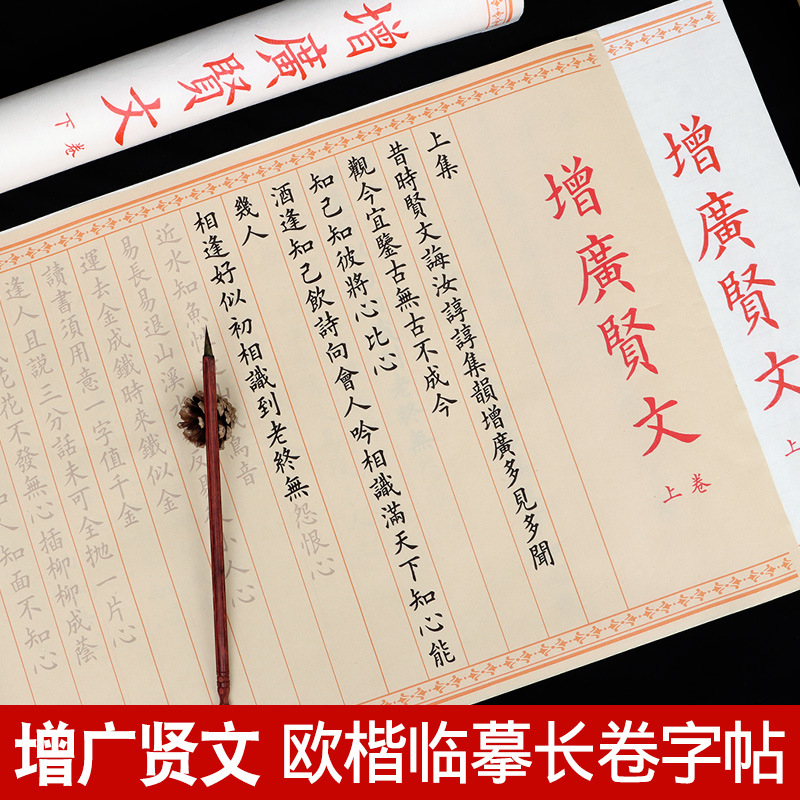 增廣賢文
下卷
增廣賢文
上
增廣賢文
上卷
上集
昔時賢文誨汝諄諄集韻增廣多見多聞
觀今宜鑒古無古不成今
知己知彼將心比心
酒逢知己飲詩向會人吟相識滿天下知心能
幾人
相逢好似初相識到老終無怨恨心
近水知魚 鳥音
易長易退山溪 反 小人心
運去金成鐵時來鐵似金
讀書須用意一字值千金
逢人且說三分話未可全拋一片心
花花不發無心插柳柳成蔭
知面不知心
增广贤文 欧楷临摹长卷字帖